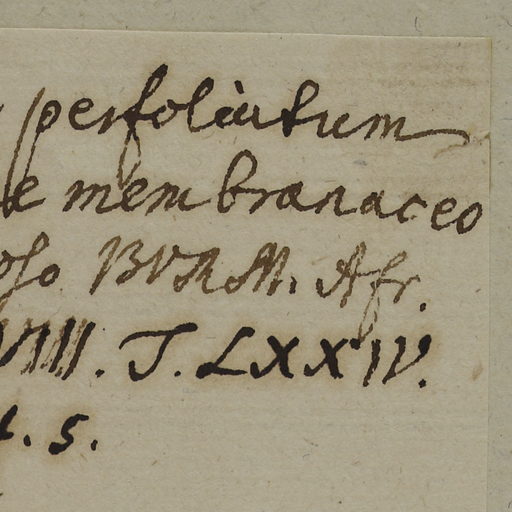 perfoliatum
membranaceo
BURM. Afr.
VIII. T. LXXIV.
5.